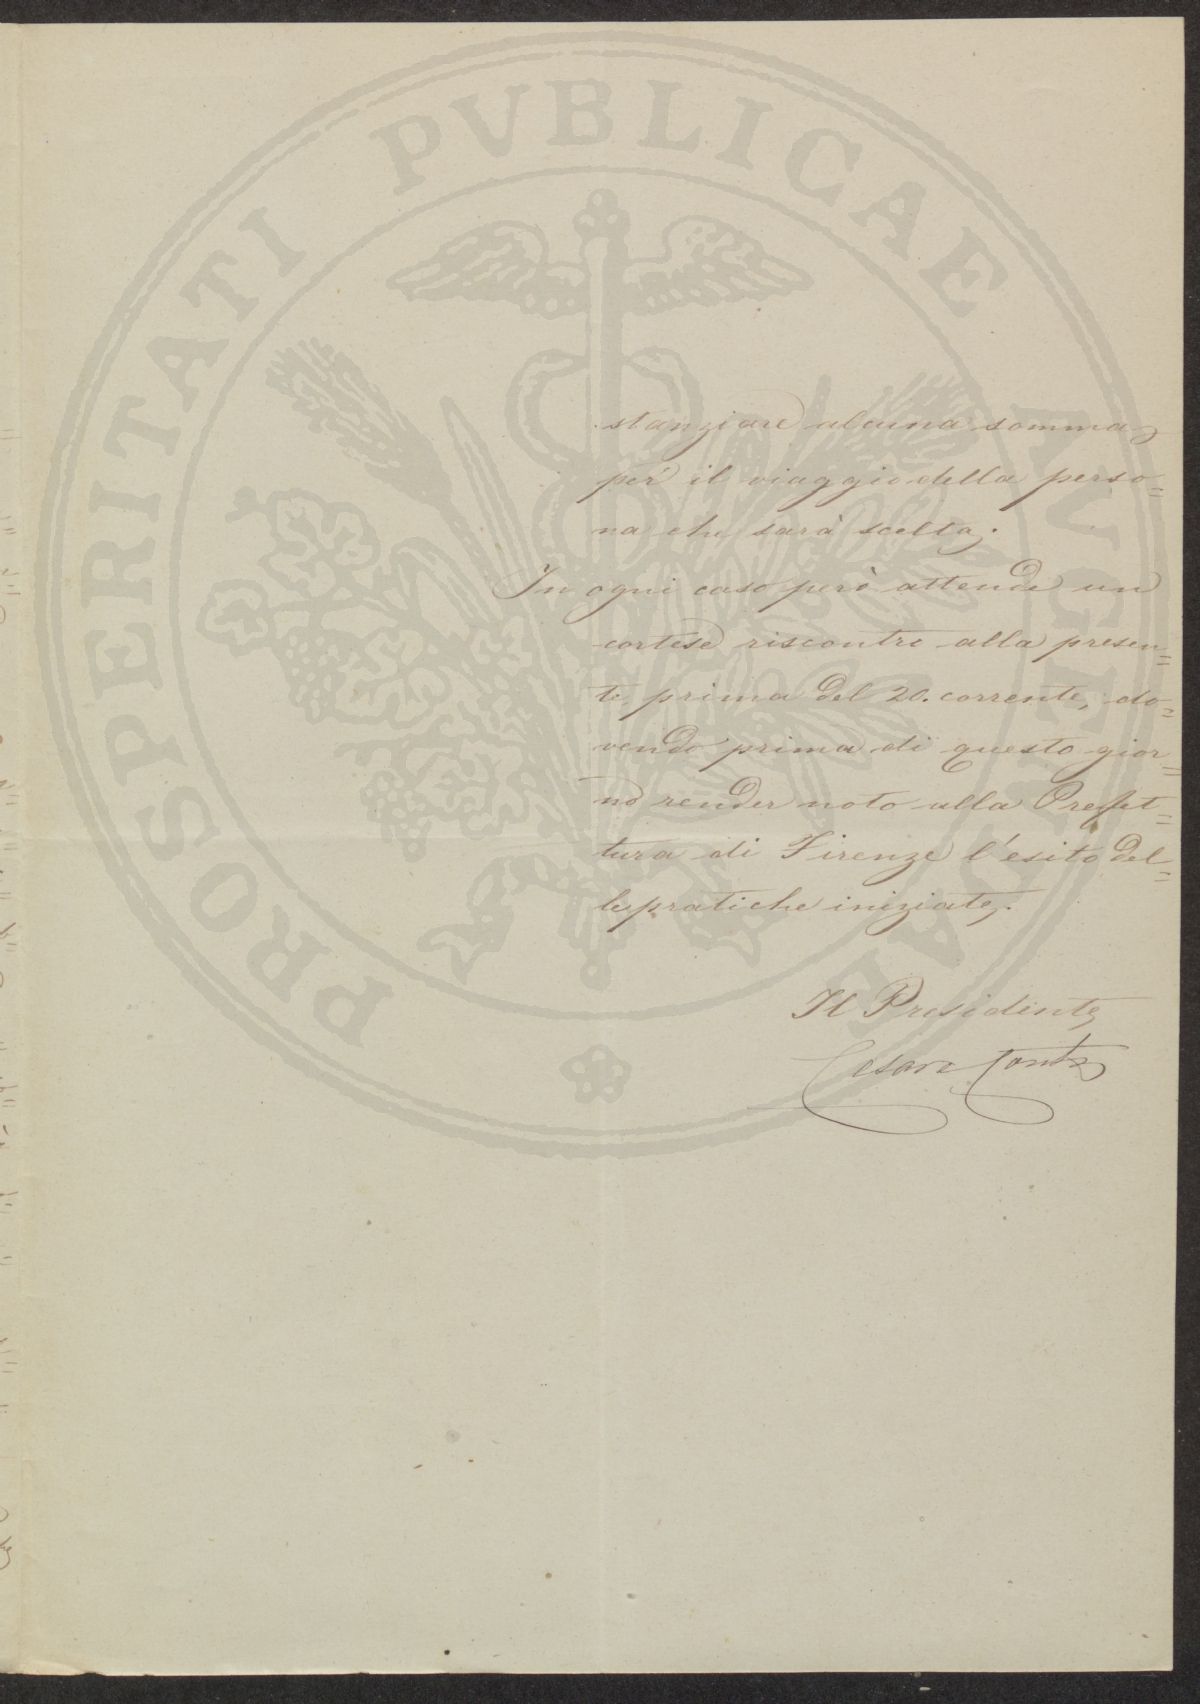 PROSPERITATI PVBLICAE AVGENDAE
stanziare alcuna somma
per il viaggio della perso=
na che sarà scelta.
In ogni caso però attende un
cortese riscontro alla presen=
te prima del 20. corrente, do=
vendo prima di questo gior=
no render noto alla Prefet=
tura di Firenze l'esito del=
le pratiche iniziate.
Il Presidente
Cesare